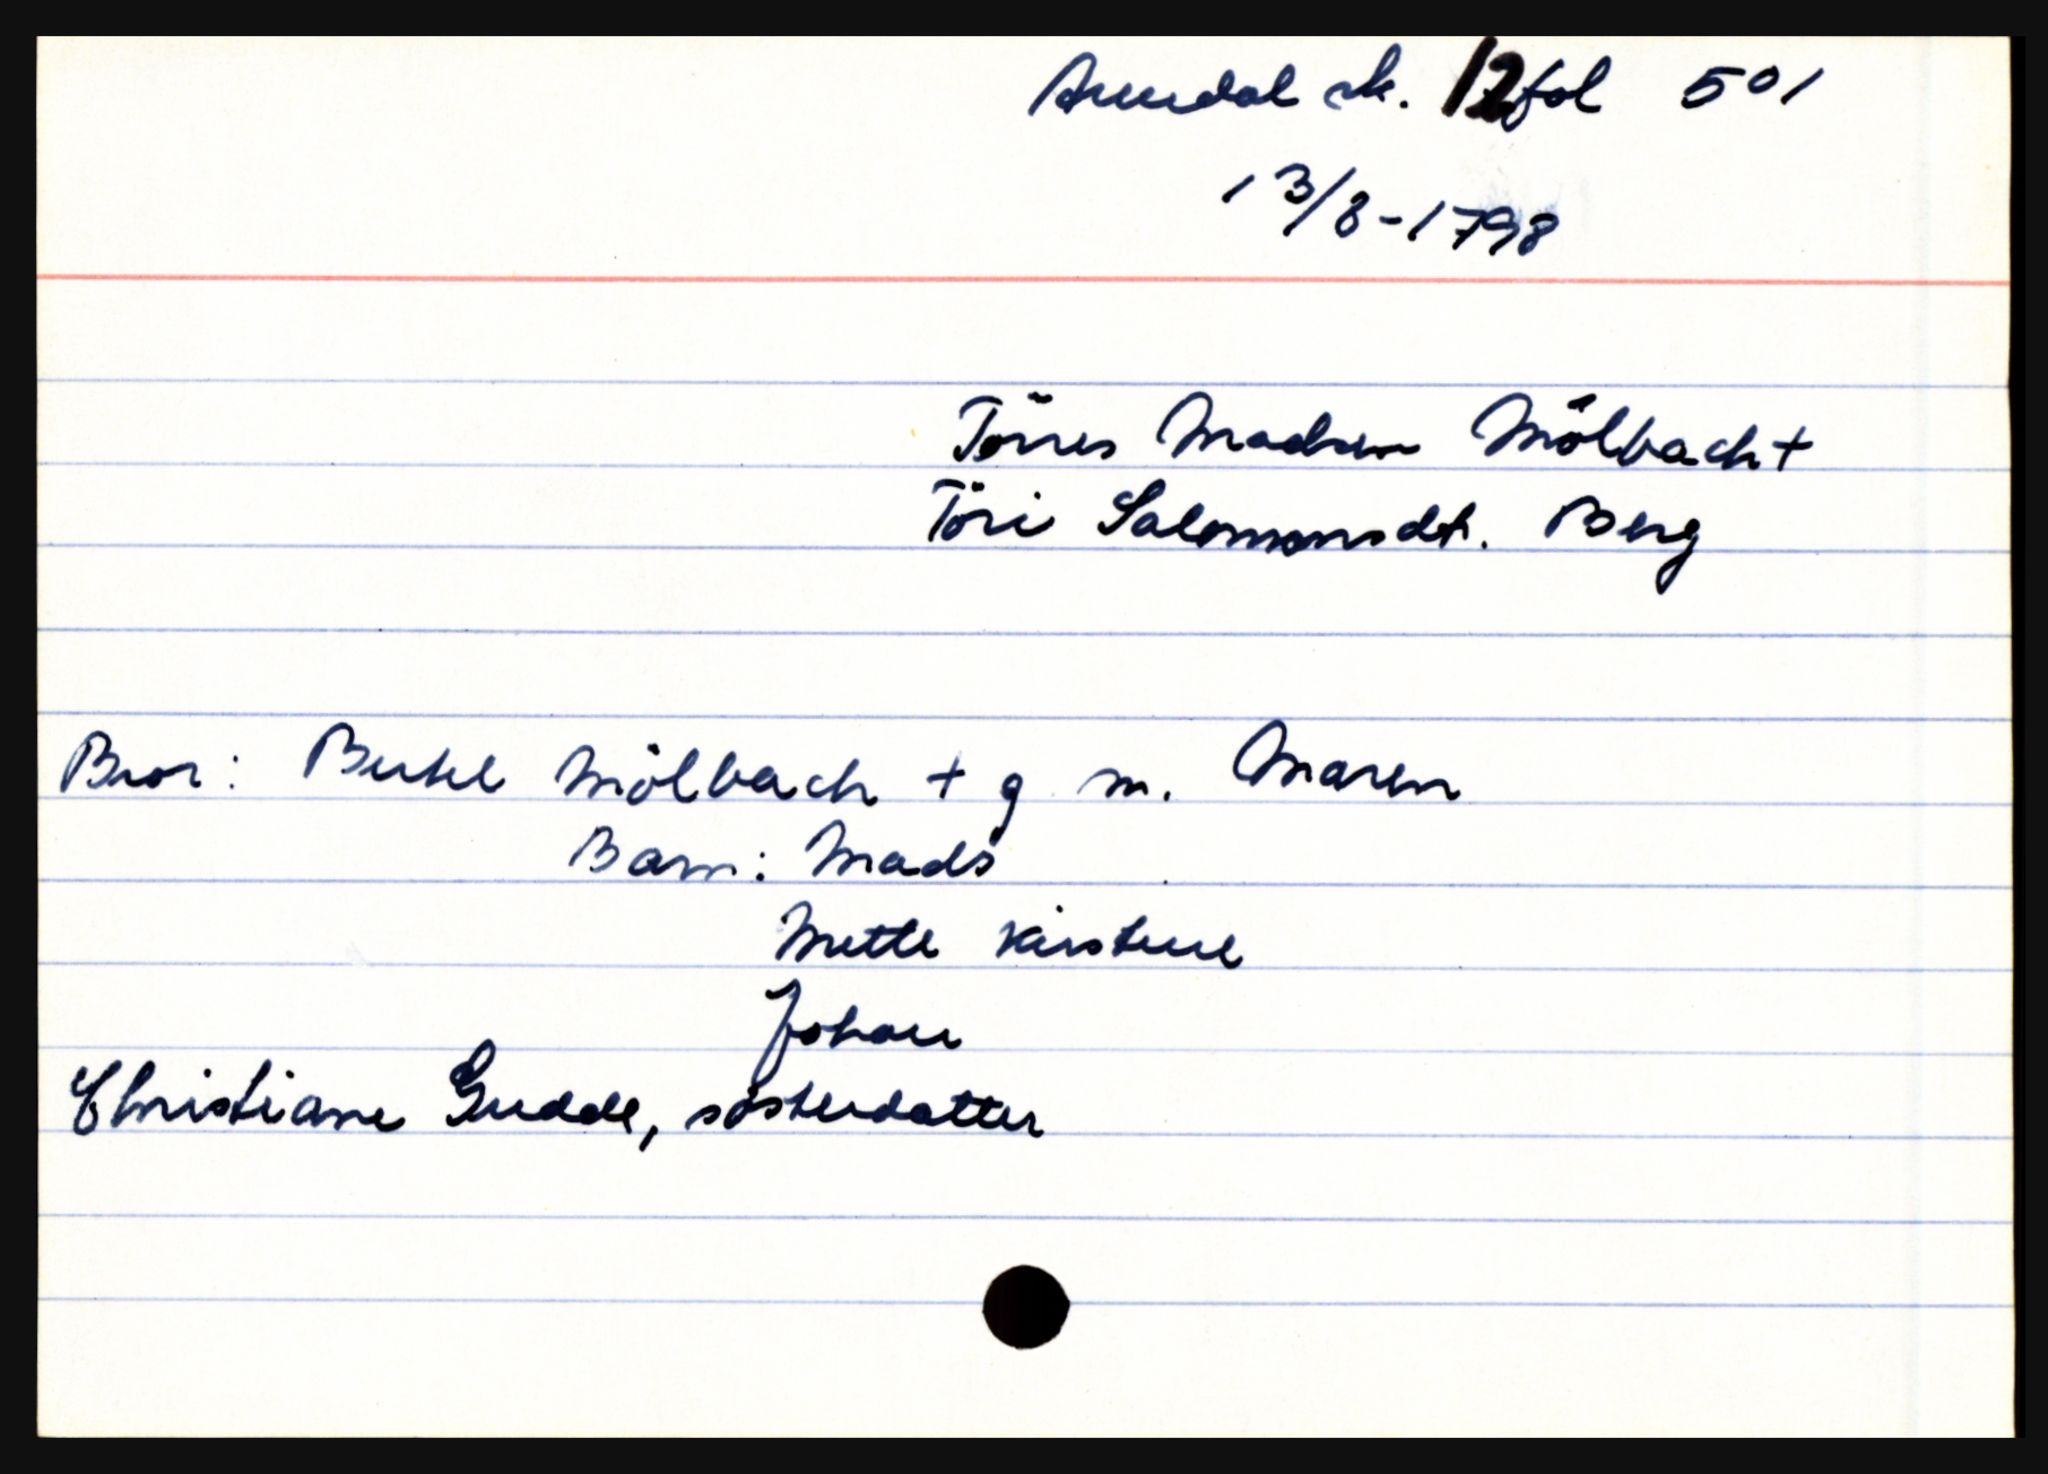 Arendal sk. 12 fol 501
13/8-1798
Törres Madsen Mölbach +
Töri Salomonsdt. Berg
Bror: Bertel Mölbach + g m. Maren
Barn: Mads
Mette Kirstine
Johan
Christiane Gudde, sösterdatter